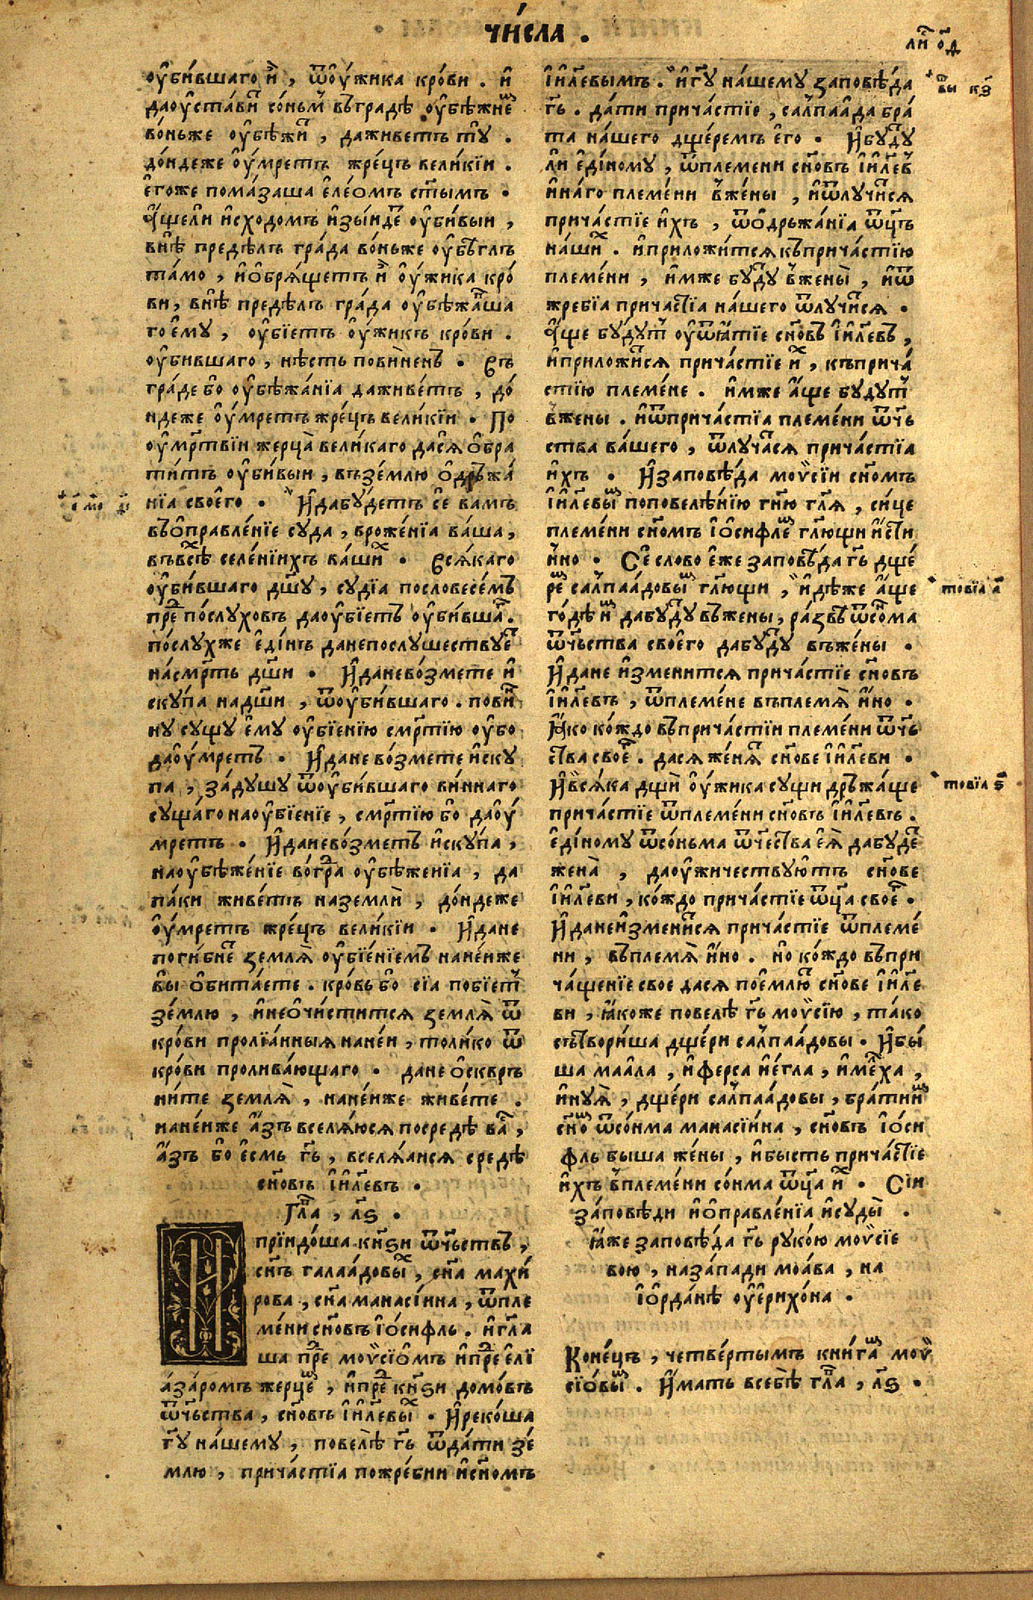 чи́сла .
ли́ ѻ҃д
ѹ҆би́вшаго и҆̀ , ѿѹ҆́жика кро́ви . и҆
даѹ҆ста́вѧⷮ со́ньмъ въ гра́дѣ ѹ҆бѣ́жнеⷨ
во́ньже ѹ҆бѣжѝ , даживе́тъ тꙋ̀ .
до́ндеже ѹ҆́мретъ жре́цъ вели́кїи .
є҆го́же пома́заша є҆ле́ѡмъ ст҃ымъ .
а҆́щели и҆схо́домъ и҆зы́йдеⷮ ѹ҆би́выи ,
внѣ̀ предѣ́лъ гра́да во́ньже ѹ҆бѣ́глъ
та́мо , и҆ѻ҆брѧ́щетъ и҆̀ ѹ҆́жика кро́
ви , внѣ̀ предѣ́лъ гра́да ѹ҆бѣжа́вша
го є҆мꙋ , ѹ҆бїе́тъ ѹ҆́жикъ кро́ви .
ѹ҆бившаго , нѣ́сть пови́ненъ . Въ
гра́де бо ѹ҆бѣжа́нїа даживе́тъ , до́
ндеже ѹ҆́мретъ жре́цъ вели́кїи . По
ѹ҆мр҃твїи жерца̀ вели́каго дасѧ ѻ҆бра
ти́тъ ѹ҆би́выи , въ зе́млю ѻ҆дръжа́
нїа своего̀ . И҆дабꙋ́детъ сѐ ва́мъ
въ ѻ҆правле́нїе сꙋда̀ , вроже́нїа ва́ша ,
въ всѣ́х селе́нїихъ ва́шиⷯ . Всѧ́каго
ѹ҆би́вшаго дш҃ꙋ , сꙋдїа̀ пословесе́мъ
преⷣ по́слꙋхъ даѹ҆бїе́тъ ѹ҆би́вшаⷢ .
по́слꙋхже є҆ди́нъ данепослꙋ́шествꙋеⷮ
на см҃рть дш҃и . И҆даневоз́мете и҆
скꙋ́па на дш҃и , ѿѹ҆би́вшаго . пови́н
нꙋ сꙋщꙋ є҆мꙋ̀ ѹ҆бїе́нїю см҃ртїю ѹ҆бо
даѹ҆мре́тъ . И҆дане во́змете и҆скꙋ
па , за́дꙋшꙋ ѿѹ҆би́вшаго ви́ннаго
сꙋща́го наѹ҆бїе́нїе , см҃ртїю бо даѹ҆́
мретъ . И҆даневоз́метъ и҆скꙋ́па ,
наѹ҆бѣже́нїе во гра́ ѹ҆бѣже́нїа , да
па́ки живе́тъ на землѝ , до́ндеже
ѹ҆́мретъ жре́цъ вели́кїи . И҆дане
поги́бнеⷮ землѧ̀ ѹ҆бїе́нїемъ на не́йже
вы ѻ҆бита́ете . кро́вь бо сїа побїеⷮ
зе́млю , и҆неѻ҆чи́стится землѧ̀ ѿ
кро́ви пролїа́нныѧ на не́и , толи́ко ѿ
кро́ви пролива́ющаго . дане ѻ҆скврь
ни́те землѧ̀ , на не́йже живе́те .
на не́йже а҆́зъ вселѧ́юсѧ посредѣ̀ ваⷭ ,
а҆́зъ бо є҆́смь гь҃ , вселѧ́аисѧ средѣ̀
сн҃овъ і҆и҃левъ .
Глⷡа , л҃ѕ .
Прїидо́ша кн҃ѕи ѿч҃ьствъ ,
сн҃ъ галаа́довыⷯ , сн҃а махи́
рова , сн҃а манасі́ина , ѿпле
ме́ни сн҃овъ і҆ѻ́сифль . и҆гл҃а
ша преⷣ моѵ҆сїѻ́мъ и҆преⷣ є҆лї
аза́ромъ жерце́мъ , и҆преⷣ кн҃ѕи домо́въ
ѿч҃ьства , сн҃овъ і҆и҃левыⷯ . И҆реко́ша
гд҃ꙋ на́шемꙋ , повелѣ̀ гь҃ ѿда́ти зе́
млю , прича́стїа по жре́бии и҆ сн҃омъ
і҆и҃левымъ . и҆ гд҃ꙋ на́шемꙋ заповѣ́да
гь҃ . да́ти прича́стїе , салпаа́да бра́
та на́шего дще́ремъ є҆го̀ . И҆бꙋ́дꙋ
ли є҆ди́номꙋ , ѿплемени сн҃овъ і҆и҃левъ
и҆на́го племе́ни вжены̀ , и҆ѿлꙋчи́сѧ
прича́стїе и҆́хъ , ѿѻ҆дръжа́нїа ѿц҃ъ
на́шиⷯ . и҆приложи́тсѧ къ прича́стїю
племе́ни , и҆́мже бꙋ́дꙋ вжены̀ , и҆ѿ
жребїа прича́стїа на́шего ѿлꙋчи́сѧ .
а҆́ще бꙋ́дꙋⷮ ѹ҆ѿѧ́тїе сн҃овъ і҆и҃левъ ,
и҆приложи́сѧ прича́стїе иⷯ , къ прича́
стїю племе́не . и҆́мже а҆́ще бꙋ́дꙋⷮ
вжены . и҆ѿприча́стїа племе́ни ѿч҃ь
ства ва́шего , ѿлꙋча́сѧ прича́стїа
и҆́хъ . И҆заповѣ́да моѵ҆сїи сн҃омъ
і҆и҃левыⷨ поповелѣ́нїю гн҃ю гл҃ѧ , си́це
племени сн҃омъ і҆ѻсифлеⷨ гл҃ющи и҆сти
нно . Се слово є҆́же заповѣ́да гь҃ дще́
реⷨ салпаа́довыⷨ гл҃ющи , и҆дѣ́же а҆́ще
го́дѣ иⷨ дабꙋ́дꙋ въ жены , ра́звѣ ѿсо́ма
ѿч҃ьства своего̀ дабꙋ́дꙋ въ жены̀ .
И҆дане и҆змени́тсѧ прича́стїе сн҃овъ
і҆и҃левъ , ѿплеме́не въ племѧ̀ и҆́но .
Ꙗ҆́ко ко́ждо въ прича́стїи племе́ни ѿч҃ь
ства своеⷢ . дасѧ женѧⷮ сн҃ове і҆и҃леви .
И҆всѧ́ка дщѝ ѹ҆́жика сꙋщи дръжа́ще
прича́стїе ѿплеме́ни сн҃овъ і҆и҃левъ .
є҆ди́номꙋ ѿсо́ньма ѿч҃ества є҆ѧ̀ дабꙋ́деⷮ
жена̀ , даѹ҆́жичествꙋютъ сн҃ове
і҆и҃леви , ко́ждо прича́стїе ѿц҃а своеⷢ .
И҆данеи҆змени́сѧ прича́стїе ѿплеме́
ни , въ племѧ̀ и҆́но . но ко́ждо въ при
ча́щенїе свое дасѧ пое́млюⷮ сн҃ове і҆и҃ле
ви , ꙗ҆́коже повелѣ̀ гь҃ моѵ҆сїю , та́ко
сътвори́ша дще́ри салпаа́довы . И҆бы́
ша маа́ла , и҆ ферса и҆ е́гла , и҆ ме́лха ,
и҆ нꙋа̀ , дще́ри салпаа́довы , бра́тииⷨ
сн҃оⷨ ѿсо́нма манасі́ина , сн҃овъ і҆ѻ́си
фль быша жены̀ , и҆бысть прича́стїе
и҆́хъ вплеме́ни со́нма ѿц҃а иⷯ . Сїи
за́повѣди и҆ѻ҆правле́нїа и҆сꙋды̀ .
ꙗ҆́же заповѣ́да гь҃ рꙋко́ю моѵ҆сїе
вою , на за́пади моа́ва , на
і҆ѻрда́нѣ ѹ҆ є҆рихо́на .
Коне́цъ , четве́ртымъ кни́гаⷨ моѵ҆
сїѻвыⷨ . и҆́мать всебѣ̀ глⷡа , л҃ѕ .
товїа а҃
товїа ѕ҃